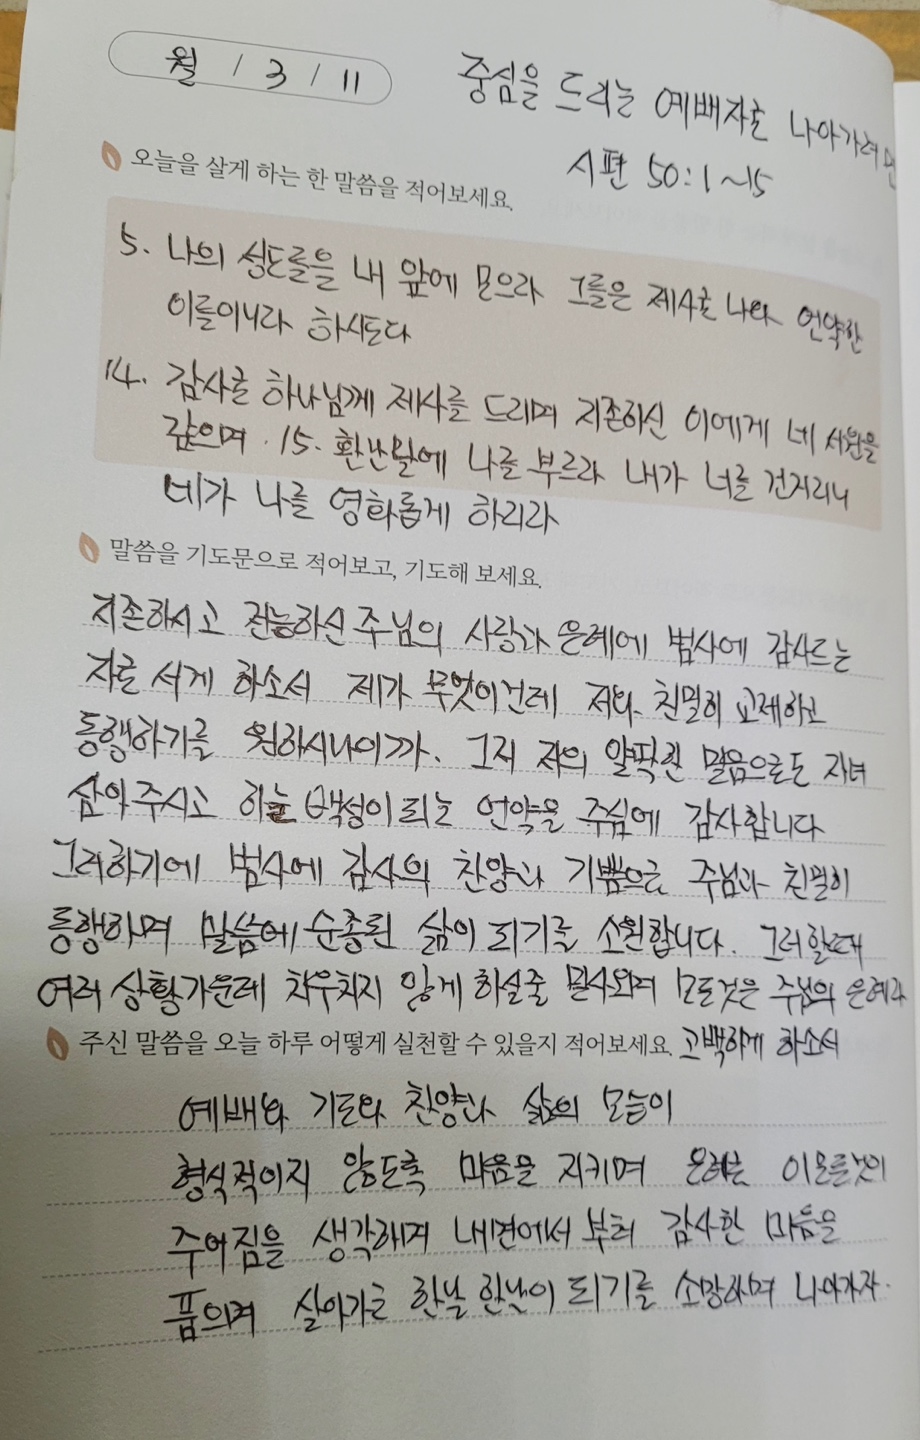 월 / 3 / 11
중심을 드리는 예배자로 나아가려면
시편 50:1~15
오늘을 살게 하는 한 말씀을 적어보세요.
5. 나의 성도들을 내 앞에 모으라 그들은 제사로 나와 언약한
이들이니라 하시도다
14. 감사로 하나님께 제사를 드리며 지존하신 이에게 네 서원을
갚으며. 15. 환난날에 나를 부르라 내가 너를 건지리니
네가 나를 영화롭게 하리라
말씀을 기도문으로 적어보고, 기도해 보세요.
지존하시고 전능하신 주님의 사랑과 은혜에 범사에 감사드는
자로 서게 하소서 제가 무엇이건데 저와 친밀히 교제하고
동행하기를 원하시나이까. 그저 저의 얄팍한 믿음으로도 자녀
삼아주시고 하늘 백성이 되는 언약을 주심에 감사합니다
그러하기에 범사에 감사의 찬양과 기쁨으로 주님과 친밀히
동행하며 말씀에 순종된 삶이 되기를 소원합니다. 그러할때
여러 상황가운데 치우치지 않게 하실줄 믿사오며 모든것은 주님의 은혜라
주신 말씀을 오늘 하루 어떻게 실천할 수 있을지 적어보세요. 고백하게 하소서
예배와 기도와 찬양과 삶의 모습이
형식적이지 않도록 마음을 지키며 은혜로 이모든것이
주어짐을 생각하며 내면에서부터 감사한 마음을
품으며 살아가는 한날 한날이 되기를 소망하며 나아가자.